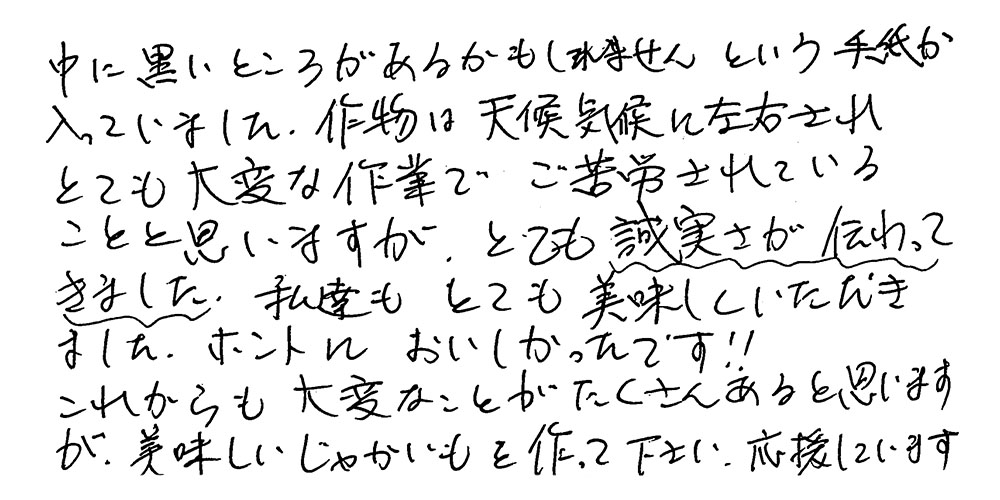 中に黒いところがあるかもしれませんという手紙が
入っていました. 作物は天候気候に左右され
とても大変な作業で ご苦労されている
ことと思いますが. とても誠実さが伝わって
きました. 私達も とても美味しくいただき
ました. ホントに おいしかったです!!
これからも大変なことがたくさんあると思います
が. 美味しいじゃがいもを作って下さい. 応援しています